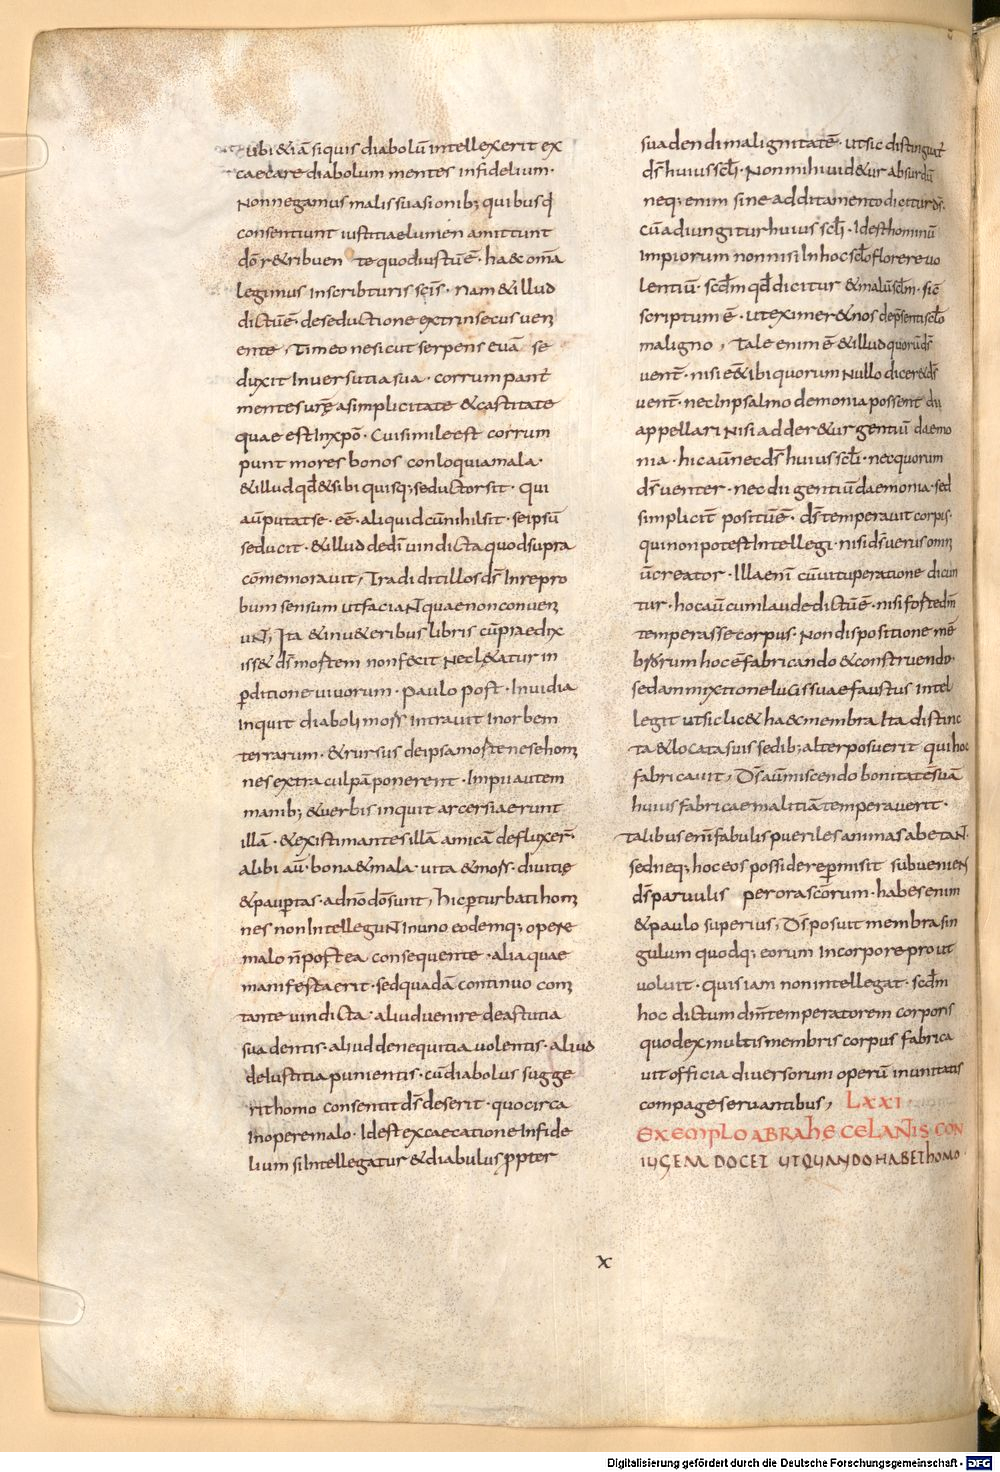 ubi &iā siquis diabolū intellexerit ex
caecare diabolum mentes infidelium·
Nonnegamus malis suasionib; quibus q̄
consentiunt iustitiae lumen amittunt
dō r&ribuente quod iustū ē· haec om̄a
legimus inscribturis sc̄is· Nam &illud
dictū ē· deseductione extrinsecus uen
ente, Timeo nesicut serpens euā se
duxit inuersutia sua· corrumpant̄
mentes ur̄ę asimplicitate &castitate
quae est inxp̄o· Cui simile est corrum
punt mores bonos conloquia mala·
&illud qđ &sibi quisq; seductor sit· qui
aū putat se· eē· aliquid cū nihil sit· seipsū
seducit· &illud dedī uindicta quod supra
cōmemorauit, Tradidit illos ds̄ Inrepro
bum sensum ut faciaNT quae non conuen
uNT, Ita &inu&eribus libris cū praedix
iss& ds̄ mortem non fecit Nec l&atur in
ꝑditione uiuorum· paulo post· Inuidia
inquit diaboli mors Intrauit Inorbem
terrarum· &rursus deipsa morte nese hom
nes extra culpā ponerent· Impii autem
manib; &uerbis inquit arcersierunt
illā· &existimantes illā amicā defluxer̄·
alibi aū· bona &mala· uita &mors· diuitię
&pauꝑtas· adn̄o dō sunt, Hic ꝑturbati hom
nes non intelleguNT Inuno eodemq; opere
malo n̄ postea consequente· alia quae
manifesta erit· sed quadā continuo com
tante uindicta· aliud uenire de astutia
suadentis· aliud denequitia uolentis· aliud
deiustitia punientis· cū diabolus sugge
rit homo consentit ds̄ deserit· quocirca
Inopere malo· Idest excaecatione Infide
lium si Intellegatur &diabulus ꝓpter
suadendi malignitatē· ut sic distinguat̄
ds̄ huius sc̄li· Non mihi uid&ur absurdū
neq; enim sine additamento dicitur ds̄·
cū adiungitur huius sc̄li· Idest hominū
Impiorum non nisi Inhoc sc̄lo florere uo
lentiū· scd̄m qđ dicitur &malū sc̄lm· sic̄
scriptum ē· ut eximer& nos de p̄senti sc̄lo
maligno, Tale enim ē &illud quorū ds̄
uent̄· nisi eēt ibi quorum Nullo dicer& ds̄
uent̄· nec Inpsalmo demonia possent dii
appellari Nisi adder&ur gentiū daemo
nia· hic aū nec ds̄ huius sc̄li· nec quorum
ds̄ uenter· nec dii gentiū daemonia· sed
simplicit̄ positū ē· ds̄ temperauit corpus·
qui non potest Intellegi· nisi ds̄ uerus om̄
ū creator· Illa enī cū uituperatione dicun
tur· hoc aū cum laude dictū ē· nisi forte dm̄
temperasse corpus· Non dispositione mē
brorum hoc ē fabricando &construendo·
sed ammixtione lucis suae faustus intel
legit ut scilic& haec membra Ita distinc
ta &locata suis sedib; alter posuerit qui hoc
fabricauit, Ds̄ aū miscendo bonitatē suā
huius fabricae malitiā temperauerit·
Talibus en̄ fabulis pueriles animas abetaNT·
sed neq; hoc eos possidere ꝑmisit subueniens
ds̄ paruulis per ora sc̄orum· habes enim
&paulo superius, Ds̄ posuit membra sin
gulum quodq; eorum Incorpore prout
uoluit· Quis iam non intellegat· scd̄m
hoc dictum dm̄ temperatorem corporis
quod ex multis membris corpus fabrica
uit officia diuersorum operū inunitatis
compage seruantibus, LXXI
EXEMPLO ABRAHE CELANTIS CON
IUGEM DOCET UT QUANDO HABET homo
x
Digitalisierung gefördert durch die Deutsche Forschungsgemeinschaft · DFG